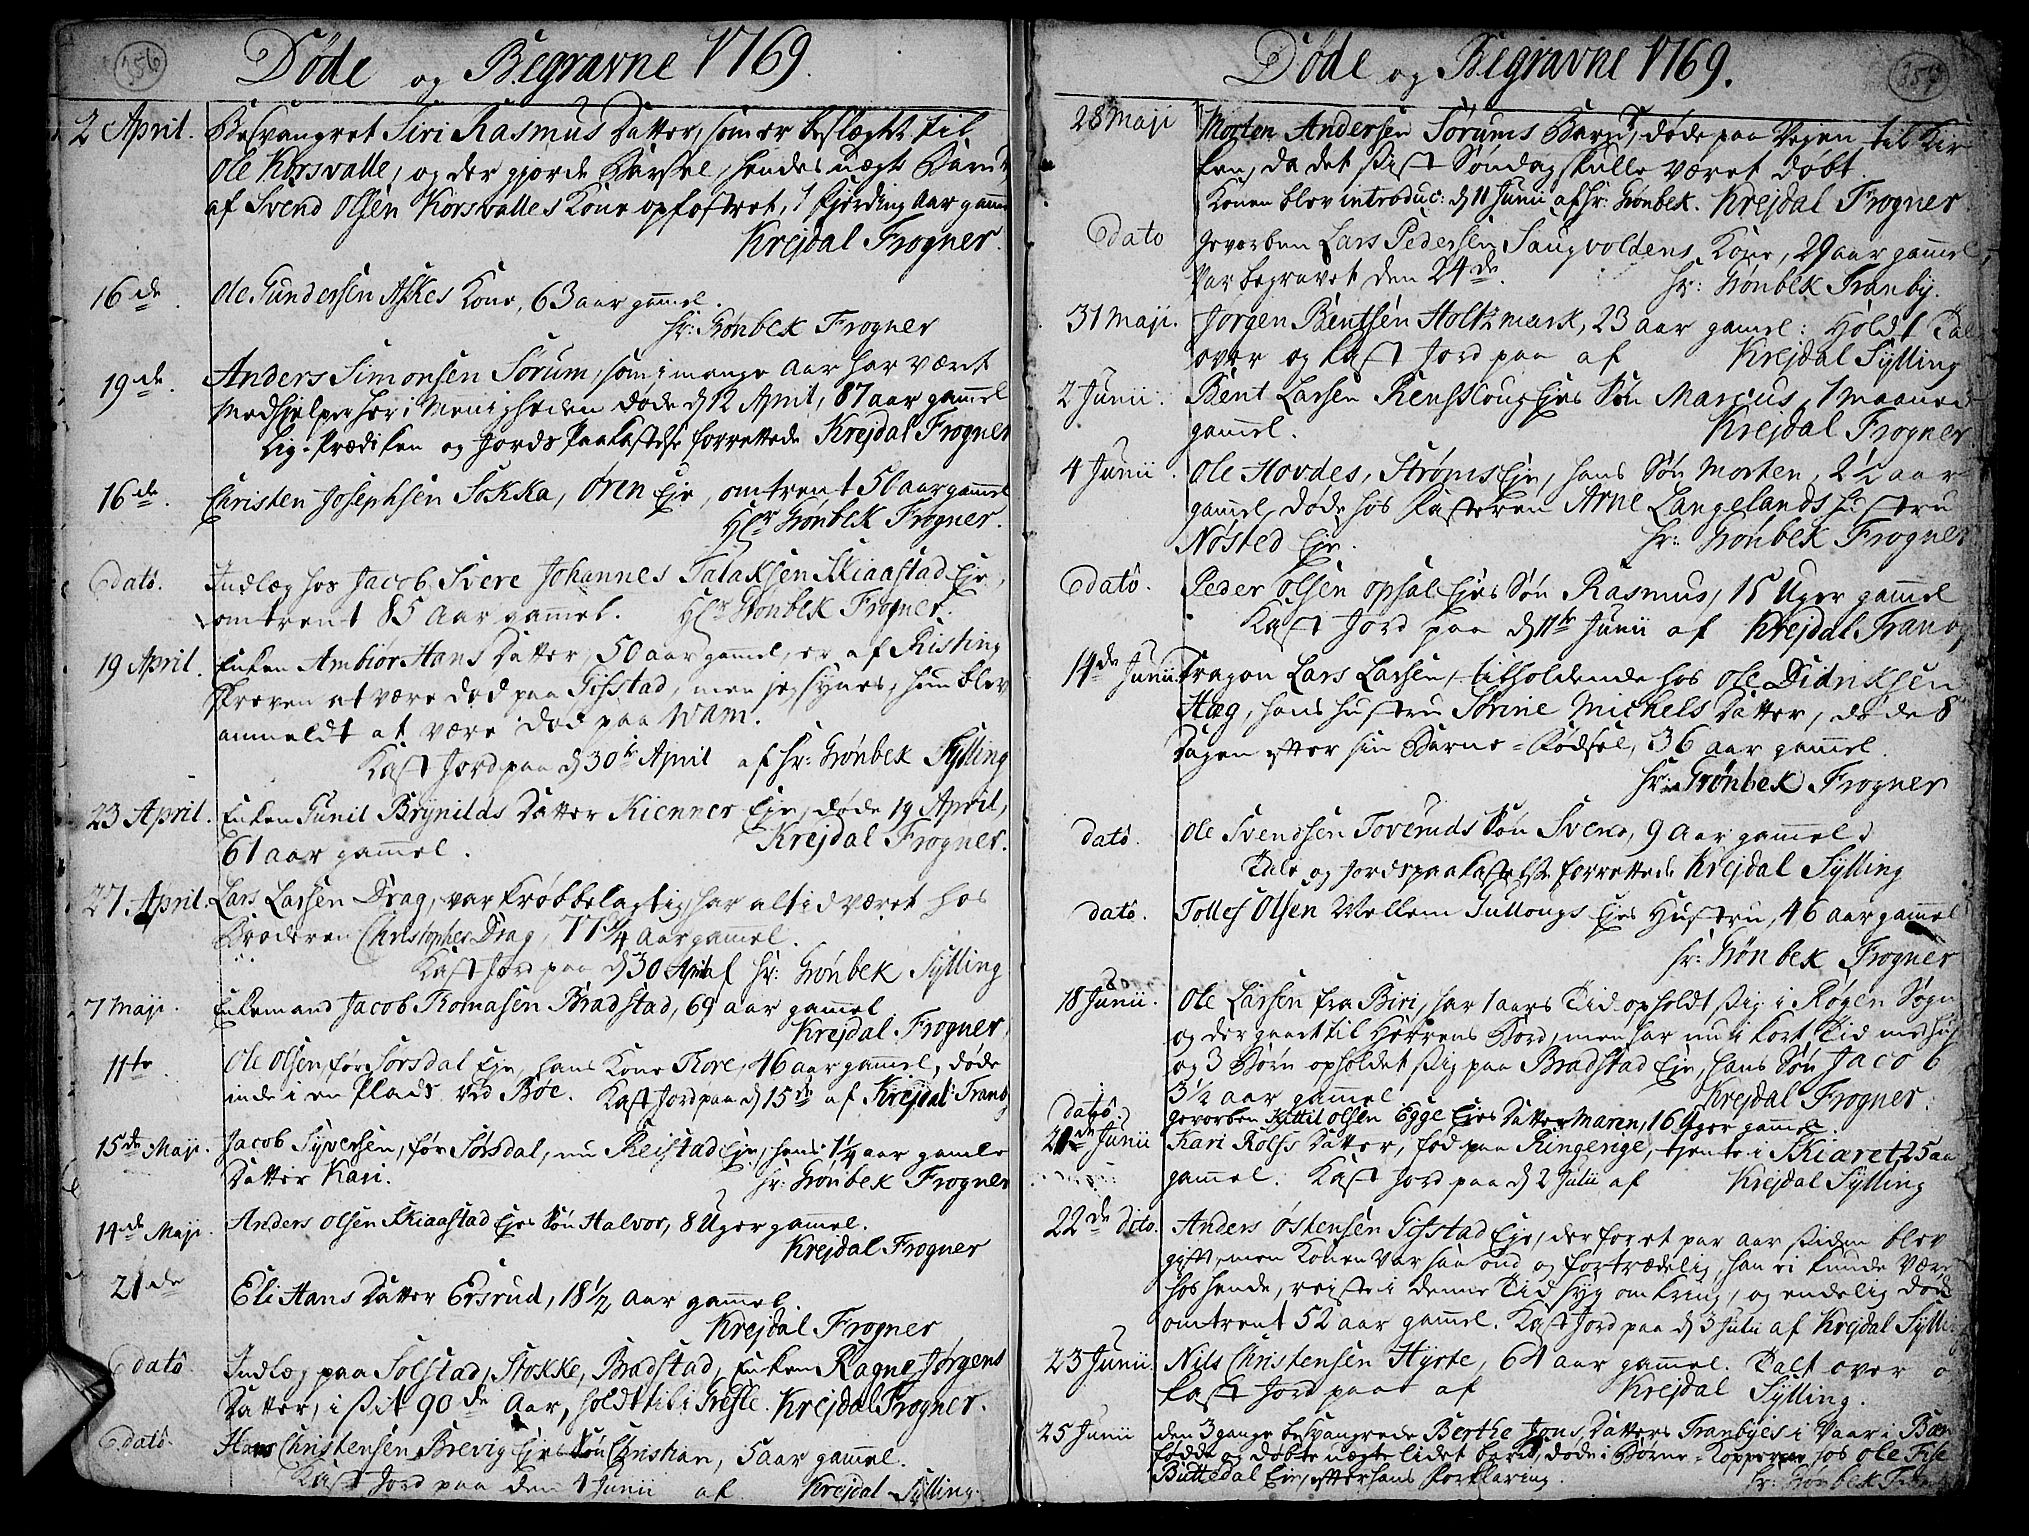 356
Døde og Begravne 1769.
2 April. Besvangret Siri Rasmus Datter, som er beslægtet til
Ole Korsvalle, og der gjorde Barsel, hendes uægte Barn
af Svend Olsen Korsvalles Kone opfostret, 1 fjerding Aar gammel
Krejdal Frogner.
16de. Ole Gundersen Askes Kone, 63 aar gammel.
Hr: Grønbek Frogner
19de. Anders Simonsen Sørum, som i mange Aar har været
Medhielper her i Menigheden døde d 12 April, 87 aar gammel
Lig-Prædiken og Jords Paakastelse forrettede Krejdal Frogner
16de. Christen Josephsen Sokka, Ören Eje, omtrent 56 aar gammel
Hr Grønbek Frogner.
dato. Indlæg hos Jacob Svere Johannes Talaksen Skiaastad Eje,
omtrent 85 Aar gammel. Hr Grønbek Frogner.
19 April. Enken Ambior Hans Datter, 50 aar gammel, er af Kisting
skreven at være død paa Gifstad, men jeg synes, hun blev
anmeldt at være død paa Wam.
Kast Jord paa d 30te April af Hr: Grönbek Sylling
23 April. Enken Gunil Brynilds Datter Kienner Eje, døde 19 April,
61 aar gammel. Krejdal Frogner.
27. April. Lars Larsen Drag, var krøbbelagtig, har altid været hos
Broderen Christopher Drag, 77 3/4 Aar gammel.
Kast Jord paa d 30 April af Hr: Grönbek Sylling
7 Maji. Enkemand Jacob Tomasen Bradstad, 69 aar gammel
Krejdal Frogner.
11te. Ole Olsen før Sorsdal Eje, hans Kone Tore, 46 aar gammel, døde
inde i en Plads ved Böe. Kast Jord paa d 15de af Krejdal Tranby
15de Maji. Jacob Syversen, før Sørsdal, nu Reistad Eje, hans 1 1/4 aar gamle
Datter Kari. Hr: Grönbek Frogner
14de Maji. Anders Olsen Skiaastad Ejes Sön Halvor, 8 Uger gammel.
Krejdal Frogner
21de Eli Hans Datter Ersrud, 18 1/2 Aar gammel.
Krejdal Frogner
dato Indlæg paa Solstad, Stokke, Bradstad, Enken Ragne Jørgens
Datter, i sit 90de Aar, holdt til i Gresle. Krejdal Frogner.
dato. Hans Christensen Brevig Ejes Søn Christian, 5 aar gammel.
Kast Jord paa den 1 Junii af Krejdal Sylling.
357
Døde og Begravne 1769.
28 Maji Morten Andersen Sörums Barn, døde paa Vejen til Kir-
ken, da det sidst Søndag skulle været døbt.
Konen blev introduc: d 11 Junii af Hr: Grönbek. Krejdal Frogner.
dato Gevorben Lars Pedersen Saugvoldens Kone, 29 aar gammel,
Var begravet den 24de. Hr: Grönbek Tranby.
31 Maji. Jørgen Bentsen Holtzmark, 23 aar gamel: Holdt Tale
over og kast Jord paa af Krejdal Sylling
2 Junii. Bent Larsen Renssloug Ejes Sön Marcus, 1 maaned
gammel. Krejdal Frogner
4 Junii. Ole Hovdes, Ströms Eje, hans Sön Morten, 2 1/2 aar
gamel, døde hos Søsteren Arne Langelands Hustru
Nösted Eje. Hr: Grönbek Frogner
dato. Peder Olsen Opsal Ejes Søn Rasmus, 15 Uger gammel
Kast Jord paa d 11te Junii af Krejdal Tranby
14de Junii. Dragon Lars Larsen, tilholdende hos Ole Didriksen
Hæg, hans Hustru Sörine Michels Datter, døde 8
Dagen efter sin Barne-Fødsel, 36 aar gammel.
Hr: Grønbek Frogner
dato. Ole Svendsen Toveruds Søn Svend, 9 Aar gammel.
Tale og Jordspaakastelse forrettede Krejdal Sylling
dato. Tolles Olsen Mellem Gullougs Ejes Hustru, 46 aar gammel
Hr: Grønbek Frogner
18 Junii. Ole Larsen fra Biri, har 1 aars Tid opholdt sig i Røgen Sogn
og der gaaet til Herrens Bord, men har nu i kort Tid med Hus
og 3 Børn opholdet sig paa Bradstad Eje, hans Sön Jacob
3 1/2 aar gammel Krejdal Frogner.
dato. Gevorben Kittil Olsen Egge Ejes Datter Maren, 16 Uger gammel.
21de Junii Kari Rolfs Datter, fød paa Ringerige, tjente i Skiaret, 25 aar
gammel. Kast Jord paa d 2 Julii af Krejdal Sylling
22de dito. Anders Østensen Gifstad Eje, der for et par Aar siden blev
gift, men Konen var saa ond og fortrædelig, han ei kunde være
hos hende, reiste i denne Tid syg omkring, og endelig døde
omtrent 52 aar gammel. Kast Jord paa d 3 Julii af Krejdal Sylling
23 Junii. Nils Christensen Hyrte, 61 aar gammel. Talt over og
kast Jord paa af Krejdal Sylling.
25 Junii den 3 gange besvangrede Berthe Jons Datters Tranbyes i Vaar i
fødde og døbte uægte lidet barn, døde i Børne-Kopperne hos Ole
Buttedal Eje, efter hans Forklaring. Hr: Grönbek